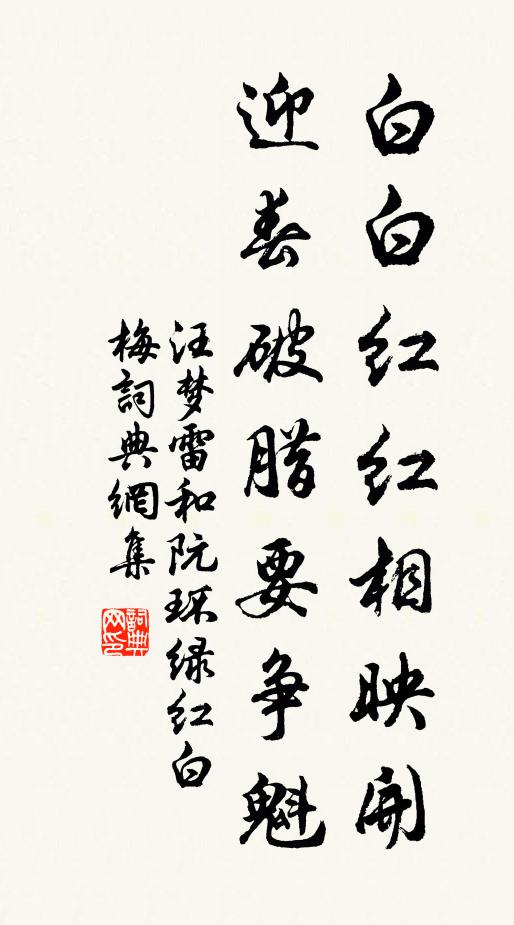 白白红红相映開
迎春破腊要争魁
汪梦雷和阮环绿红白
梅詞典網集
詞典
网印